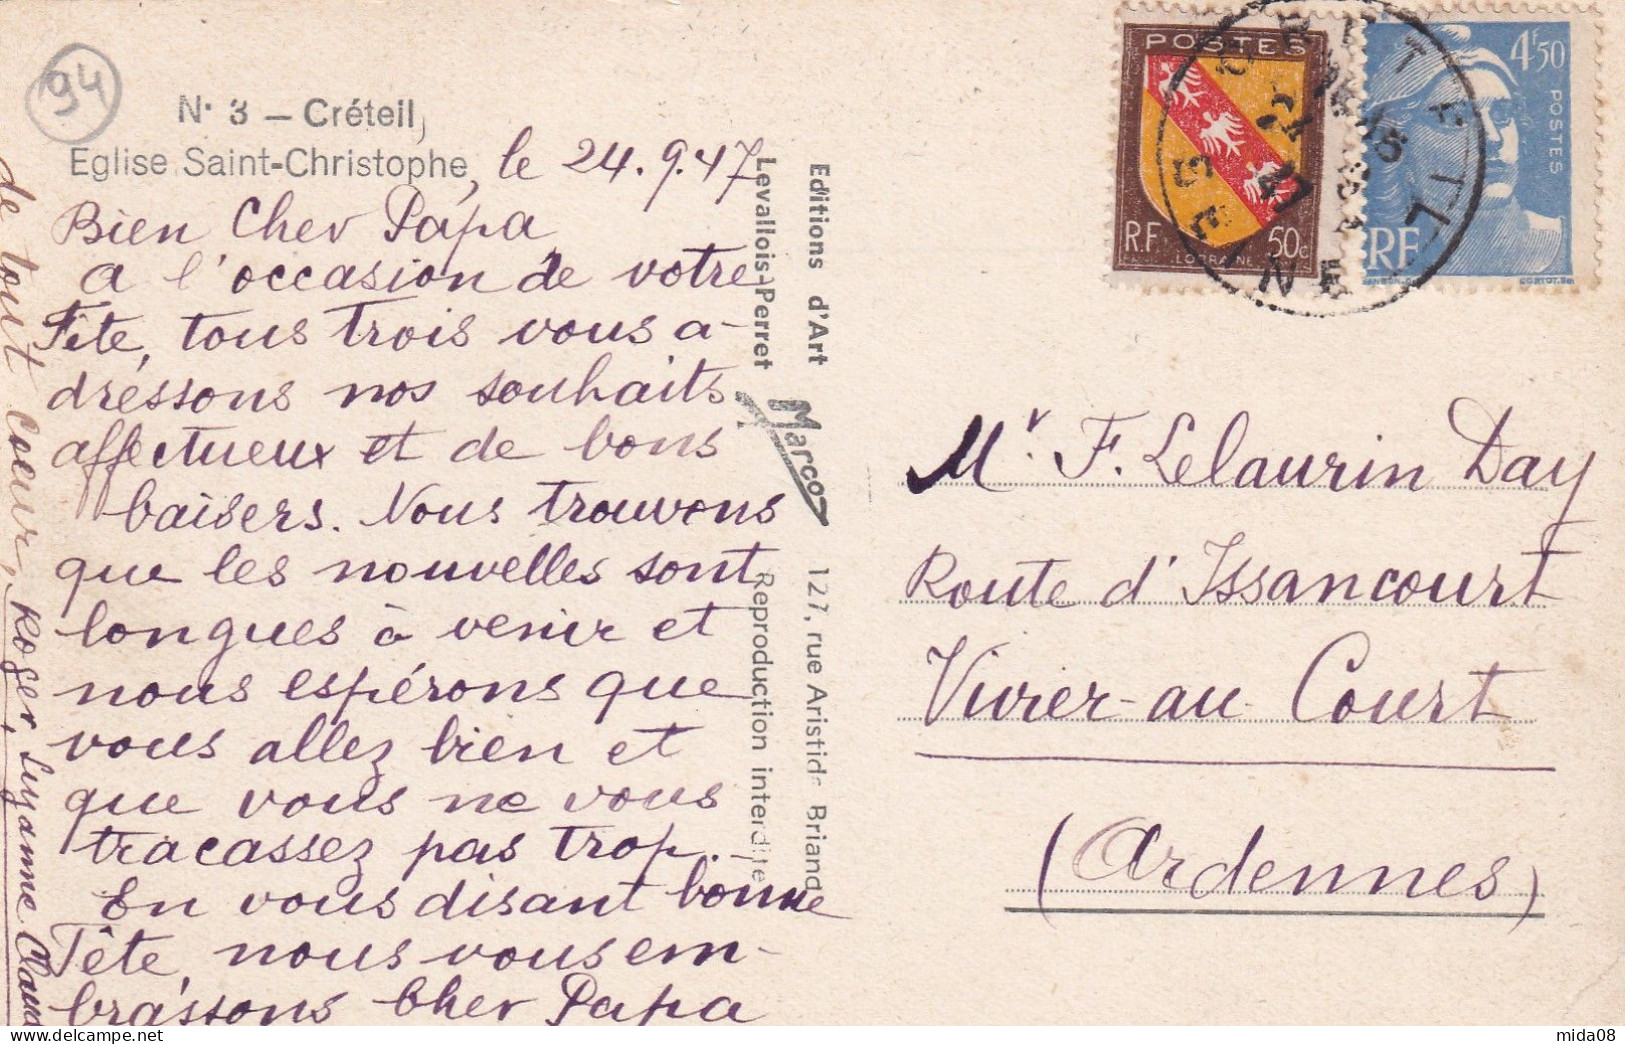 94
N° 3 — Créteil
Eglise Saint-Christophe, le 24.9.47
Bien Cher Papa,
A l'occasion de votre
Fête, tous trois vous a-
dressons nos souhaits
affectueux et de bons
baisers. Nous trouvons
que les nouvelles sont
longues à venir et
nous espérons que
vous allez bien et
que vous ne vous
tracassez pas trop.
En vous disant bonne
Fête, nous vous em-
brassons Cher Papa
de tout coeur, Roger, Suzanne. Claud
Editions d'Art Marco 127, rue Aristide Briand
Levallois-Perret Reproduction interdite
POSTES
R.F
50c
LORRAINE
4F50
POSTES
RF
CRETEIL
SEINE
Mr. F. Lelaurin Day
Route d'Issancourt
Vivier-au-Court
(Ardennes)
mida08